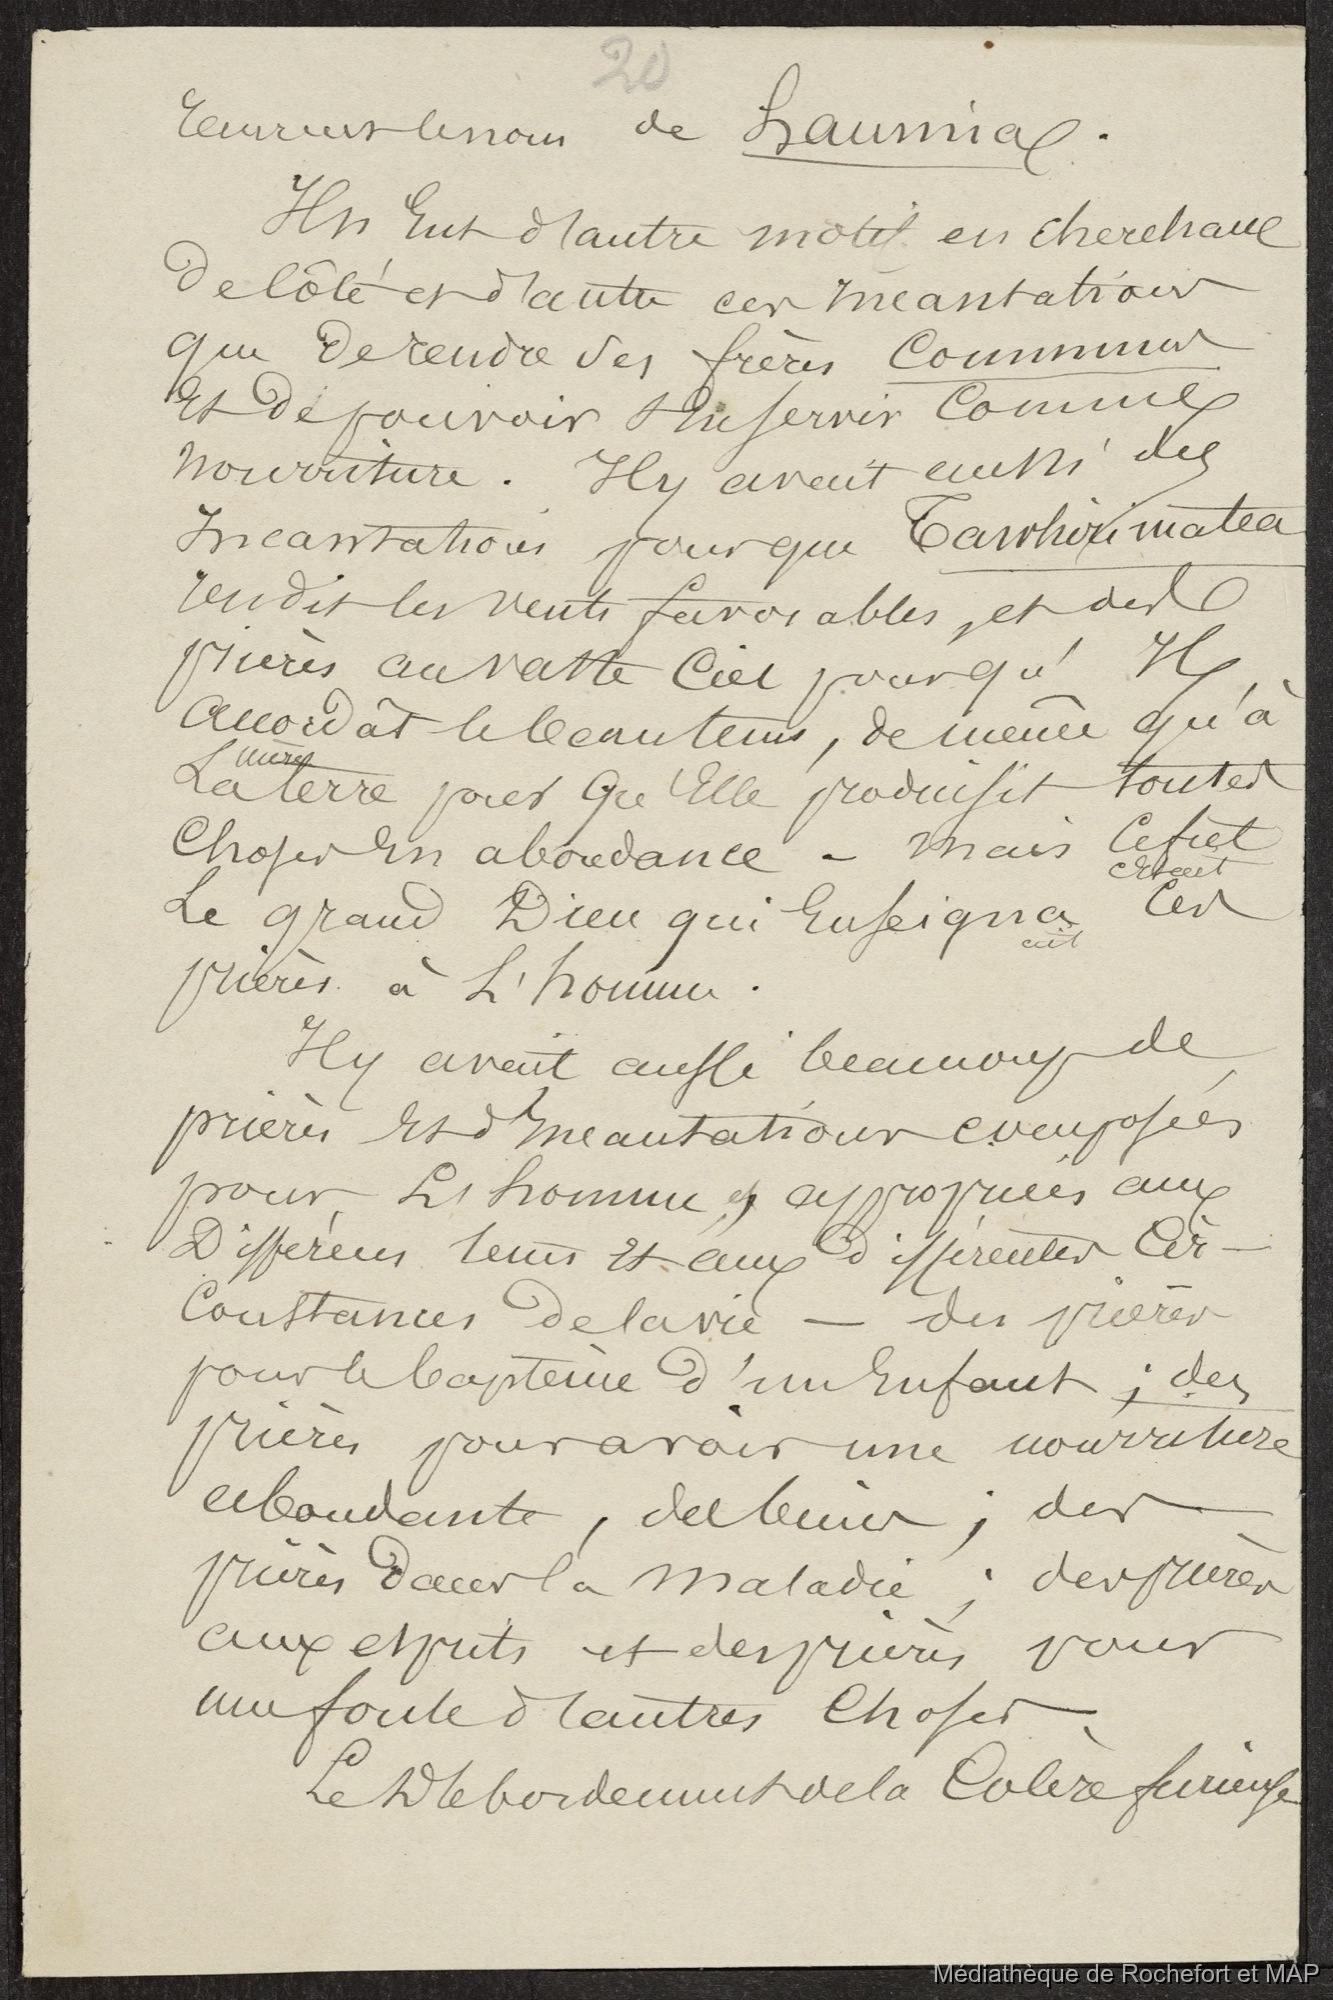 20
reçurent le nom de Haumia.
Il n'eut d'autre motif en cherchant
De côté et d'autre ces Incantations
que De rendre ses frères Communs
Et De pouvoir s'en servir Comme
Nourriture. Il y avait aussi des
Incantations pour que Tawhirimatea
rendit les vents favorables, et des
prières au vaste Ciel pour qu'Il
accordât le beau tems, de même qu'à
mère
La terre pour qu'Elle produisit toutes
Choses En abondance - Mais Ce fut
c'était
Le grand Dieu qui Enseigna Ces
ait
prières à L'homme.
Il y avait aussi beaucoup de
prières Et d'Incantations composées
pour L'homme & appropriées aux
Différens tems Et aux différentes Cir-
Constances De la vie — des prières
pour le baptême D'un Enfant ; des
prières pour avoir une nourriture
abondante, des biens ; des
prières Dans la Maladie ; des prières
aux esprits et des prières pour
une foule d'autres Choses.
Le Débordement de la Colère furieuse
Médiathèque de Rochefort et MAP